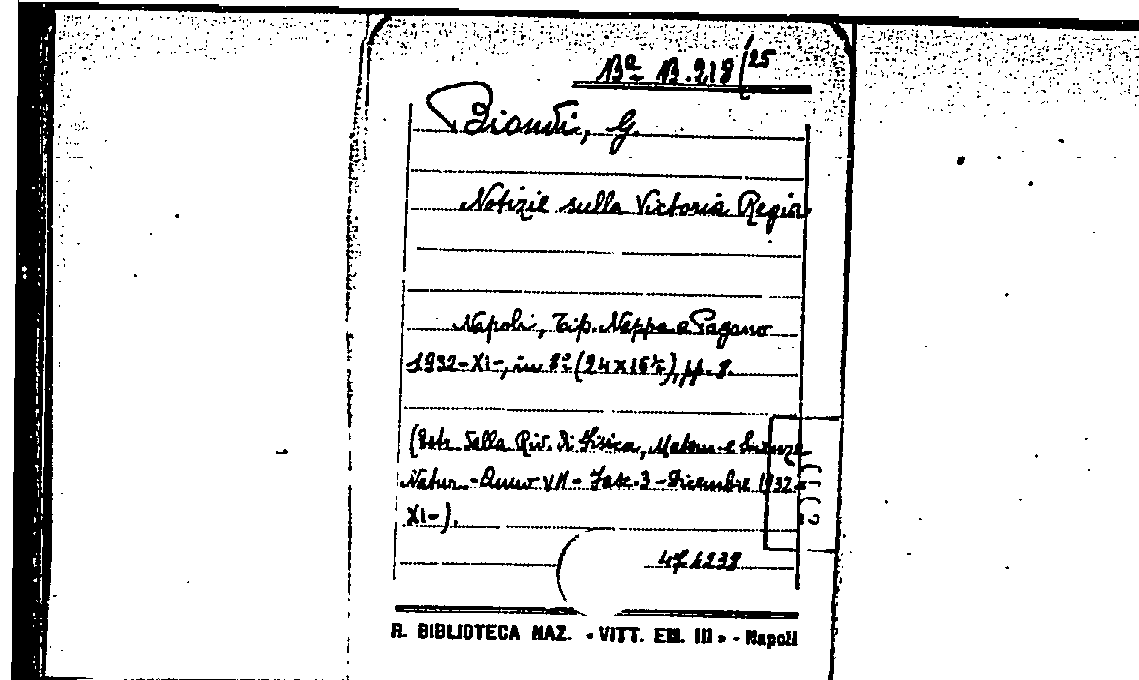 Bª B. 218/25
Biondi, G.
Notizie sulla Victoria Regia
Napoli, Tip. Nappa e Pagano
1932-XI-, in 8° (24x16½), pp. 8.
(Estr. dalla Riv. di Fisica, Matem. e Scienze
Natur. - Anno VII - Fasc. 3 - Dicembre 1932-
XI-).
R. BIBLIOTECA NAZ. «VITT. EM. III» - Napoli